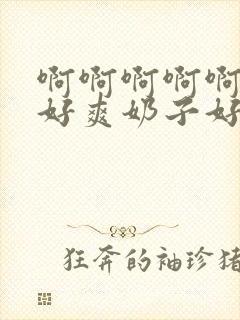 啊啊啊啊啊
好爽奶子好
狂奔的袖珍猪